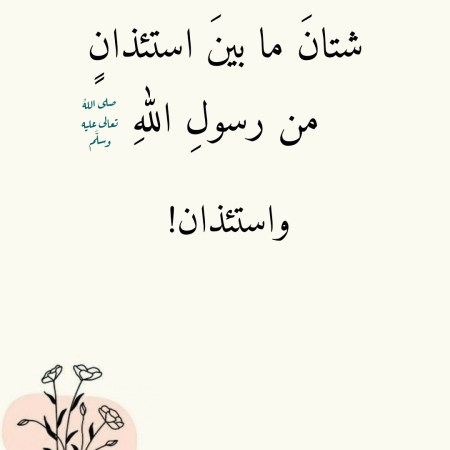 شتانَ ما بينَ استئذانٍ
من رسولِ اللهِ صلى الله تعالى عليه وسلَّم
واستئذان!